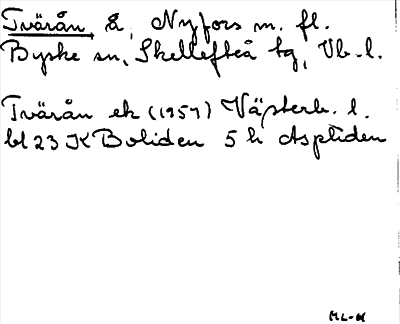 Tvärån å, Nyfors m. fl.
Byske sn, Skellefteå tg, Vb. l.
Tvärån ek (1957) Västerb. l.
bl 23 K Boliden 5 h Aspliden